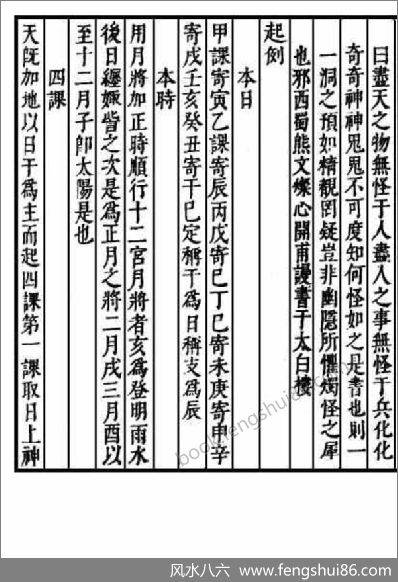 曰盡天之物無怪于人盡人之事無怪于兵化化
奇奇神神鬼鬼不可度知何怪如之是書也則一
一洞之預如精覩罔疑豈非幽隱所懼燭怪之犀
也邪西蜀熊文燦心開甫謾書于太白樓
起例
本日
甲課寄寅乙課寄辰丙戊寄巳丁巳寄未庚寄申辛
寄戌壬亥癸丑寄干巳定稱干爲日稱支爲辰
本時
用月將加正時順行十二宮月將者亥爲登明雨水
後日纏娵訾之次是爲正月之將二月戌三月酉以
至十二月子卽太陽是也
四課
天旣加地以日干爲主而起四課第一課取日上神
book.fengshui86.com
风水八六 - www.fengshui86.com